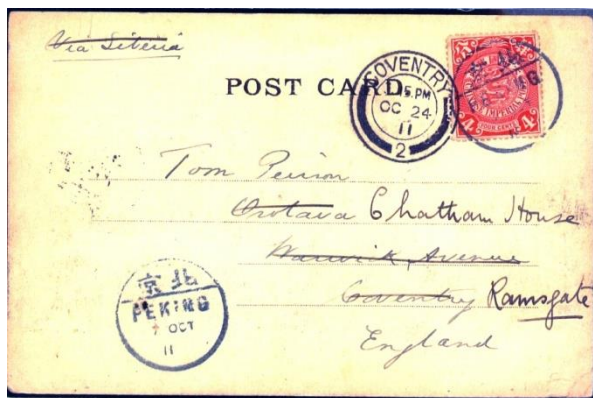 Via Siberia
POST CARD
COVENTRY
15.PM
OC 24
11
2
FOUR CENTS
4
4
Tom
Orotava Chatham House
Warwick Avenue
Coventry Ramsgate
England
京北
PEKING
7 OCT
11